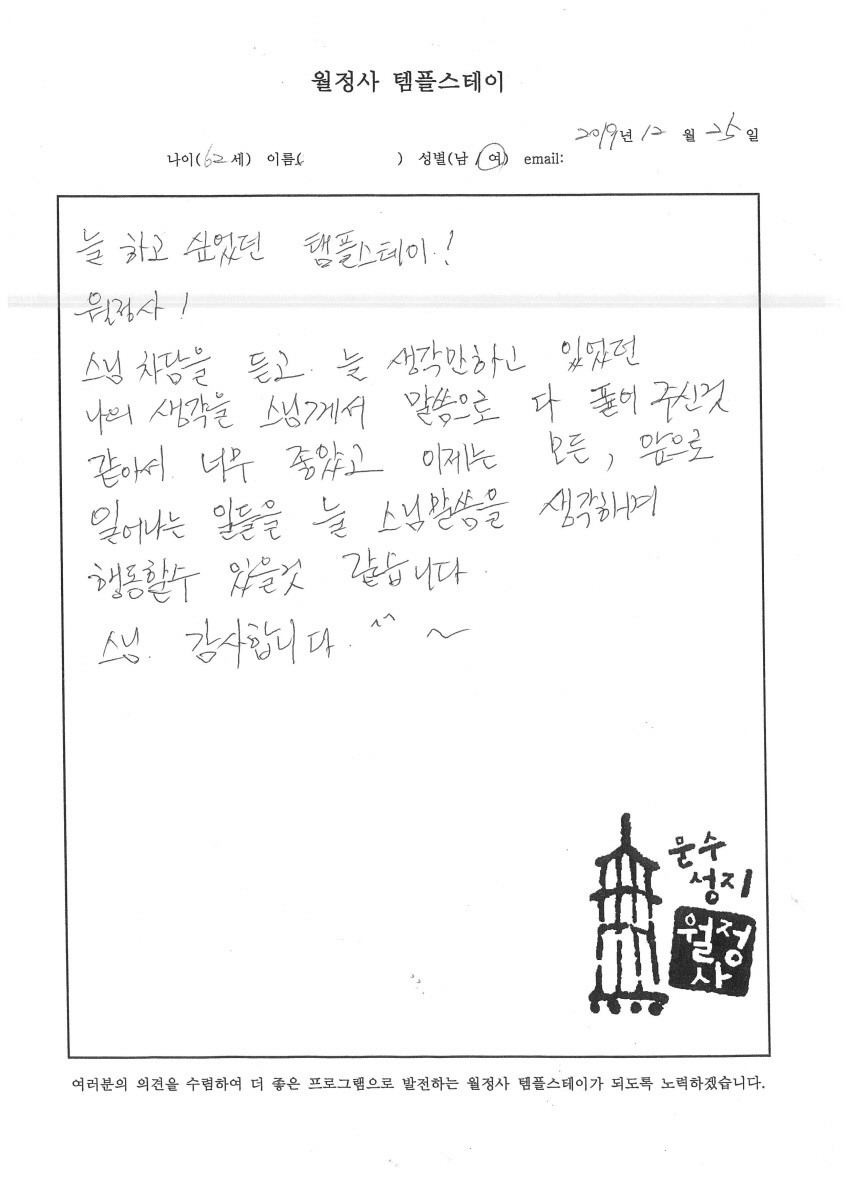 월정사 템플스테이
2019년 12 월 25 일
나이(62세) 이름( ) 성별(남/여) email:
늘 하고 싶었던 템플스테이.!
월정사!
스님 차담을 듣고. 늘 생각만하고 있었던
나의 생각을 스님께서 말씀으로 다 풀어 주신것
같아서. 너무 좋았고 이제는 모든, 앞으로
일어나는 일들을 늘 스님말씀을 생각하며
행동할수 있을것 같습니다.
스님. 감사합니다. ^^ ~
문수
성지
월정
사
여러분의 의견을 수렴하여 더 좋은 프로그램으로 발전하는 월정사 템플스테이가 되도록 노력하겠습니다.